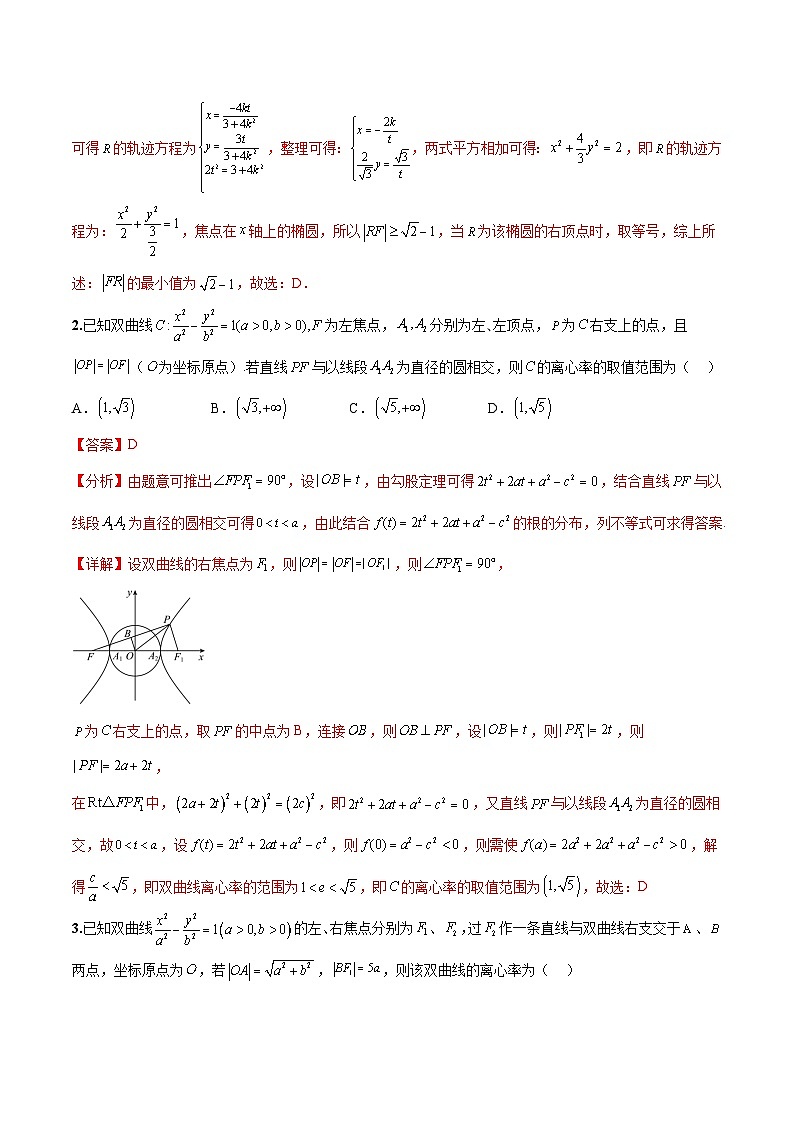 可得R的轨迹方程为{x=\frac{-4kt}{3+4k^2}, y=\frac{3t}{3+4k^2}, 2t^2=3+4k^2，整理可得：{x=-\frac{2k}{t}, \frac{2}{\sqrt{3}}y=\frac{\sqrt{3}}{t}，两式平方相加可得：x^2+\frac{4}{3}y^2=2，即R的轨迹方
程为：\frac{x^2}{2}+\frac{y^2}{\frac{3}{2}}=1，焦点在x轴上的椭圆，所以|RF|≥\sqrt{2}-1，当R为该椭圆的右顶点时，取等号，综上所
述：|FR|的最小值为\sqrt{2}-1，故选：D．
2.已知双曲线C:\frac{x^2}{a^2}-\frac{y^2}{b^2}=1(a>0,b>0),F为左焦点，A_1,A_2分别为左､左顶点，P为C右支上的点，且
|OP|=|OF|（O为坐标原点）.若直线PF与以线段A_1A_2为直径的圆相交，则C的离心率的取值范围为（ ）
A．(1,\sqrt{3}) B．(\sqrt{3},+∞) C．(\sqrt{5},+∞) D．(1,\sqrt{5})
【答案】D
【分析】由题意可推出∠FPF_1=90°，设|OB|=t，由勾股定理可得2t^2+2at+a^2-c^2=0，结合直线PF与以
线段A_1A_2为直径的圆相交可得0<t<a，由此结合f(t)=2t^2+2at+a^2-c^2的根的分布，列不等式可求得答案.
【详解】设双曲线的右焦点为F_1，则|OP|=|OF|=|OF_1|，则∠FPF_1=90°，
y
P
B
F A_1 O A_2 F_1 x
P为C右支上的点，取PF的中点为B，连接OB，则OB⊥PF，设|OB|=t，则|PF_1|=2t，则
|PF|=2a+2t，
在Rt△FPF_1中，(2a+2t)^2+(2t)^2=(2c)^2，即2t^2+2at+a^2-c^2=0，又直线PF与以线段A_1A_2为直径的圆相
交，故0<t<a，设f(t)=2t^2+2at+a^2-c^2，则f(0)=a^2-c^2<0，则需使f(a)=2a^2+2a^2+a^2-c^2>0，解
得\frac{c}{a}<\sqrt{5}，即双曲线离心率的范围为1<e<\sqrt{5}，即C的离心率的取值范围为(1,\sqrt{5})，故选：D
3.已知双曲线\frac{x^2}{a^2}-\frac{y^2}{b^2}=1(a>0,b>0)的左､右焦点分别为F_1､F_2,过F_2作一条直线与双曲线右支交于A､B
两点，坐标原点为O，若|OA|=\sqrt{a^2+b^2}，|BF_1|=5a，则该双曲线的离心率为（ ）